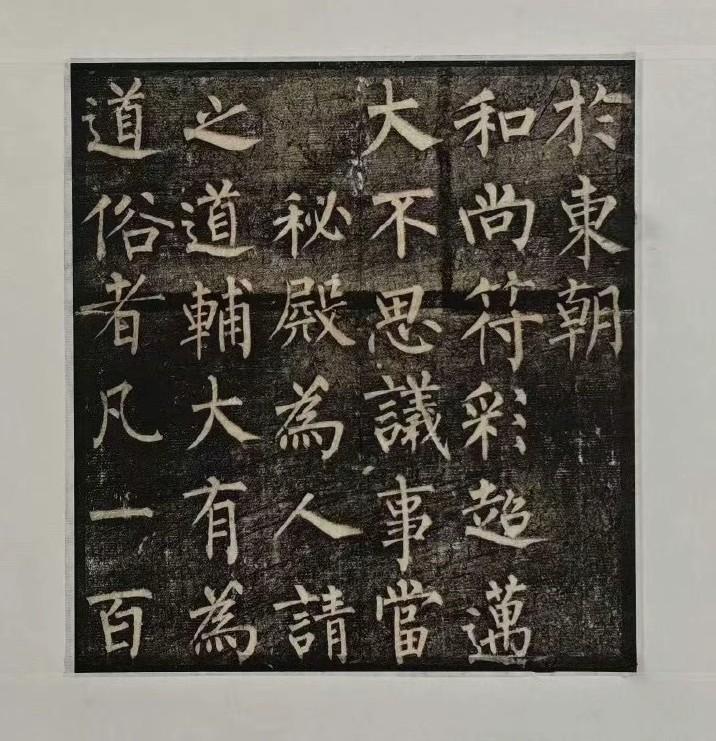 於東朝
和尚符彩超邁
大不思議事當
秘殿為人請
之道輔大有為
道俗者凡一百